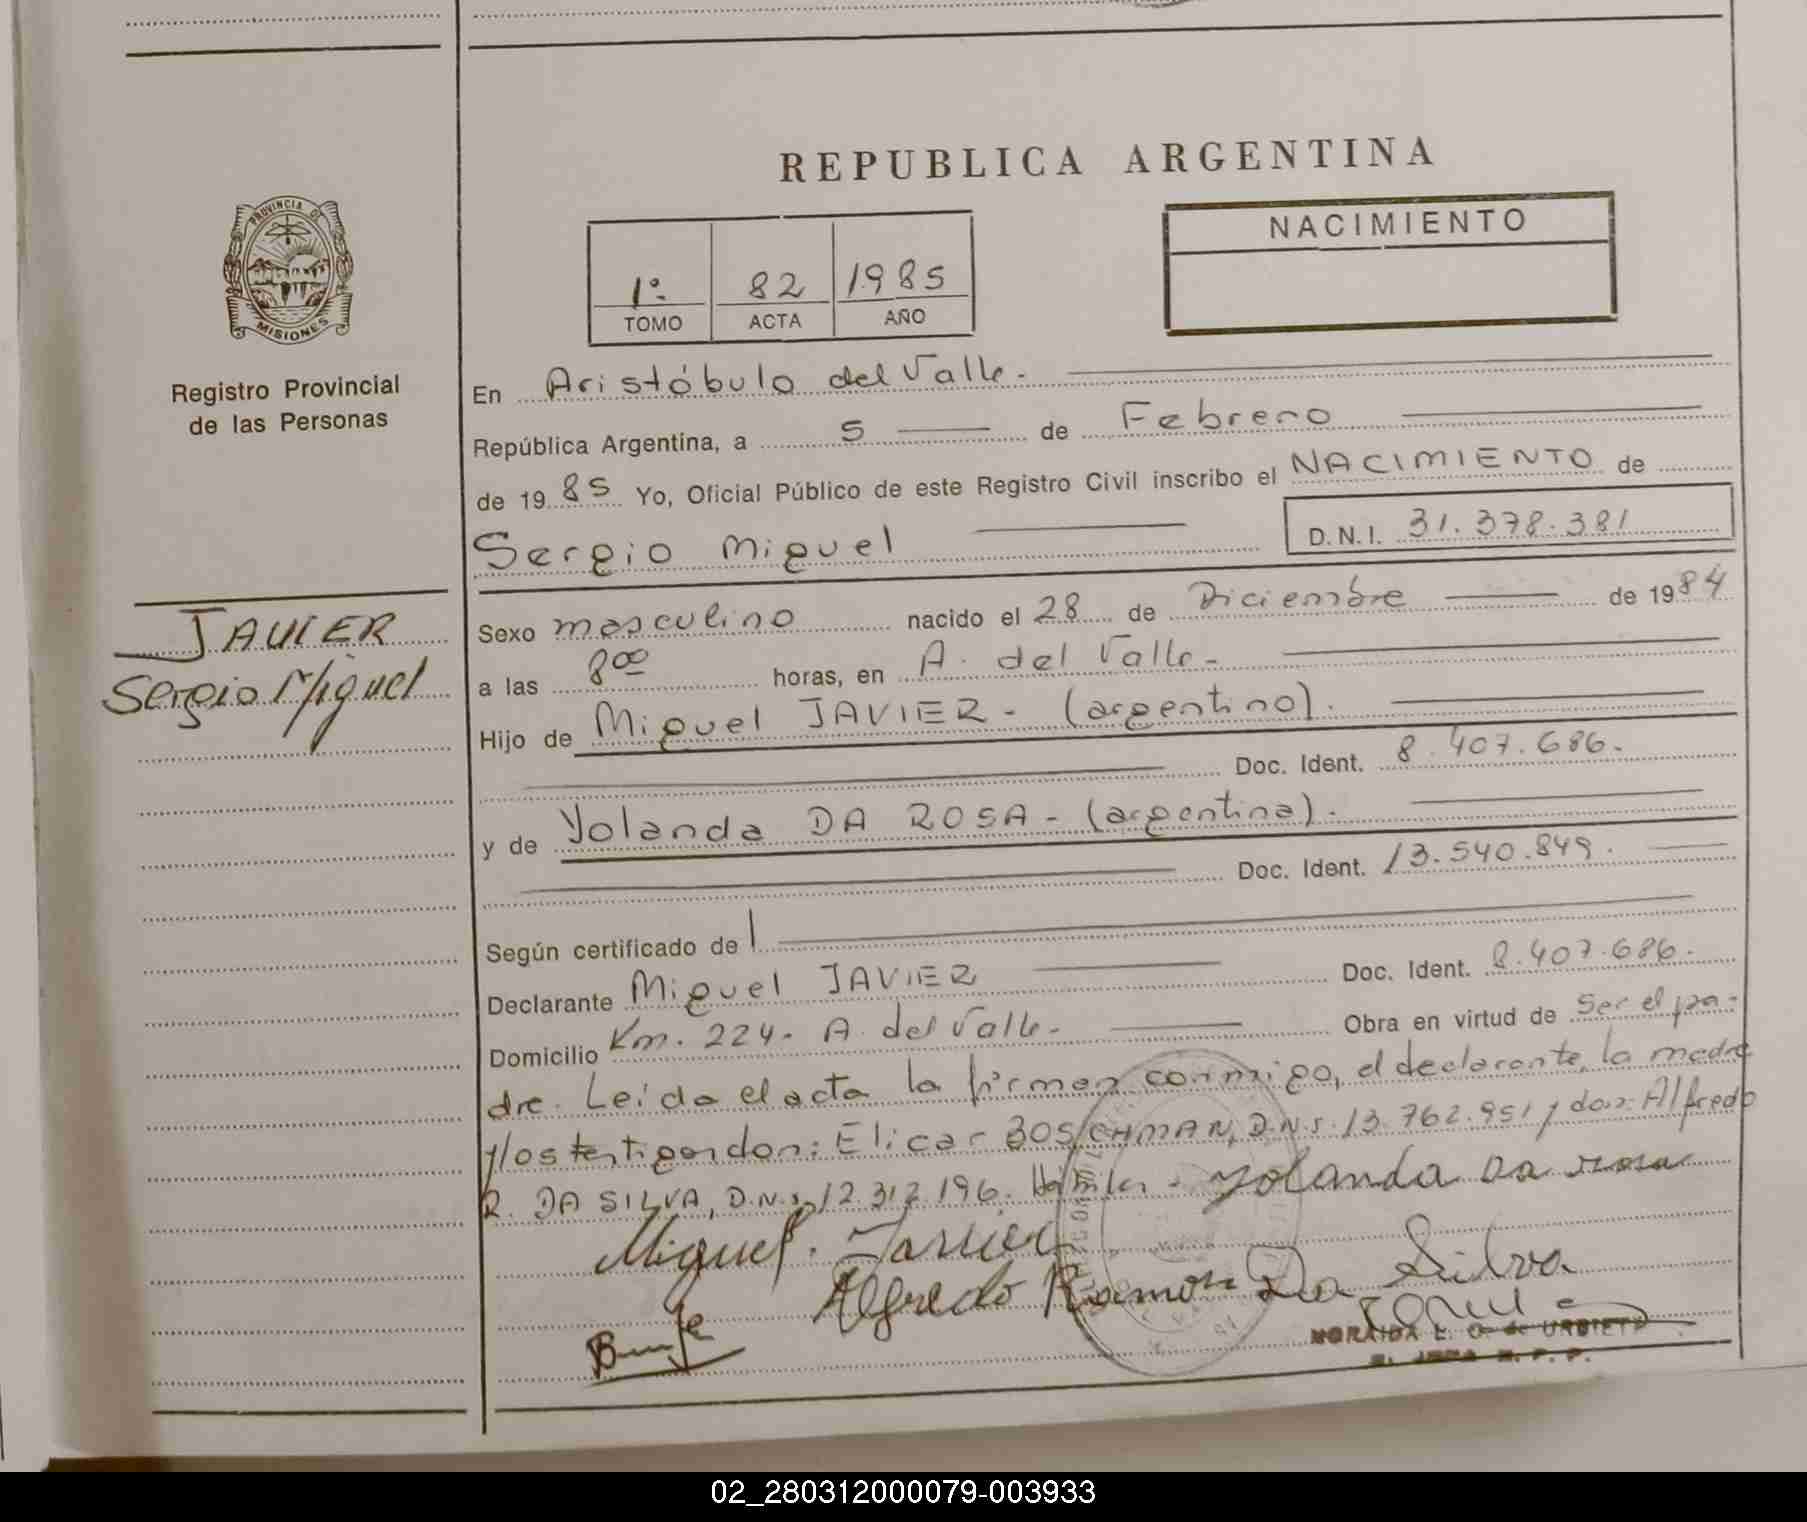 REPUBLICA ARGENTINA
PROVINCIA DE
MISIONES
Registro Provincial
de las Personas
1º 82 1985
TOMO ACTA AÑO
NACIMIENTO
En Aristóbulo del Valle.
República Argentina, a 5 de Febrero
de 1985 Yo, Oficial Público de este Registro Civil inscribo el NACIMIENTO de
Sergio Miguel D.N.I. 31.378.381
JAVIER
Sergio Miguel
Sexo masculino nacido el 28 de Diciembre de 1984
a las 8 00 horas, en A. del Valle.
Hijo de Miguel JAVIER - (argentino).
Doc. Ident. 8.407.686.
y de Yolanda DA ROSA - (argentina).
Doc. Ident. 13.540.849.
Según certificado de
Declarante Miguel JAVIER Doc. Ident. 8.407.686.
Domicilio Km. 224. A. del Valle. Obra en virtud de ser el pa-
dre. Leída el acta la firman conmigo, el declarante, la madre
y los testigos don: Elicar BOSCHMAN, D.N.I. 13.762.951 y don: Alfredo
R. DA SILVA, D.N.I. 12.312.196. Hábiles - Yolanda da rosa
Miguel. Javier
Alfredo Ramon Da Silva
MORAIDA E. O. de URBIETA
02_280312000079-003933